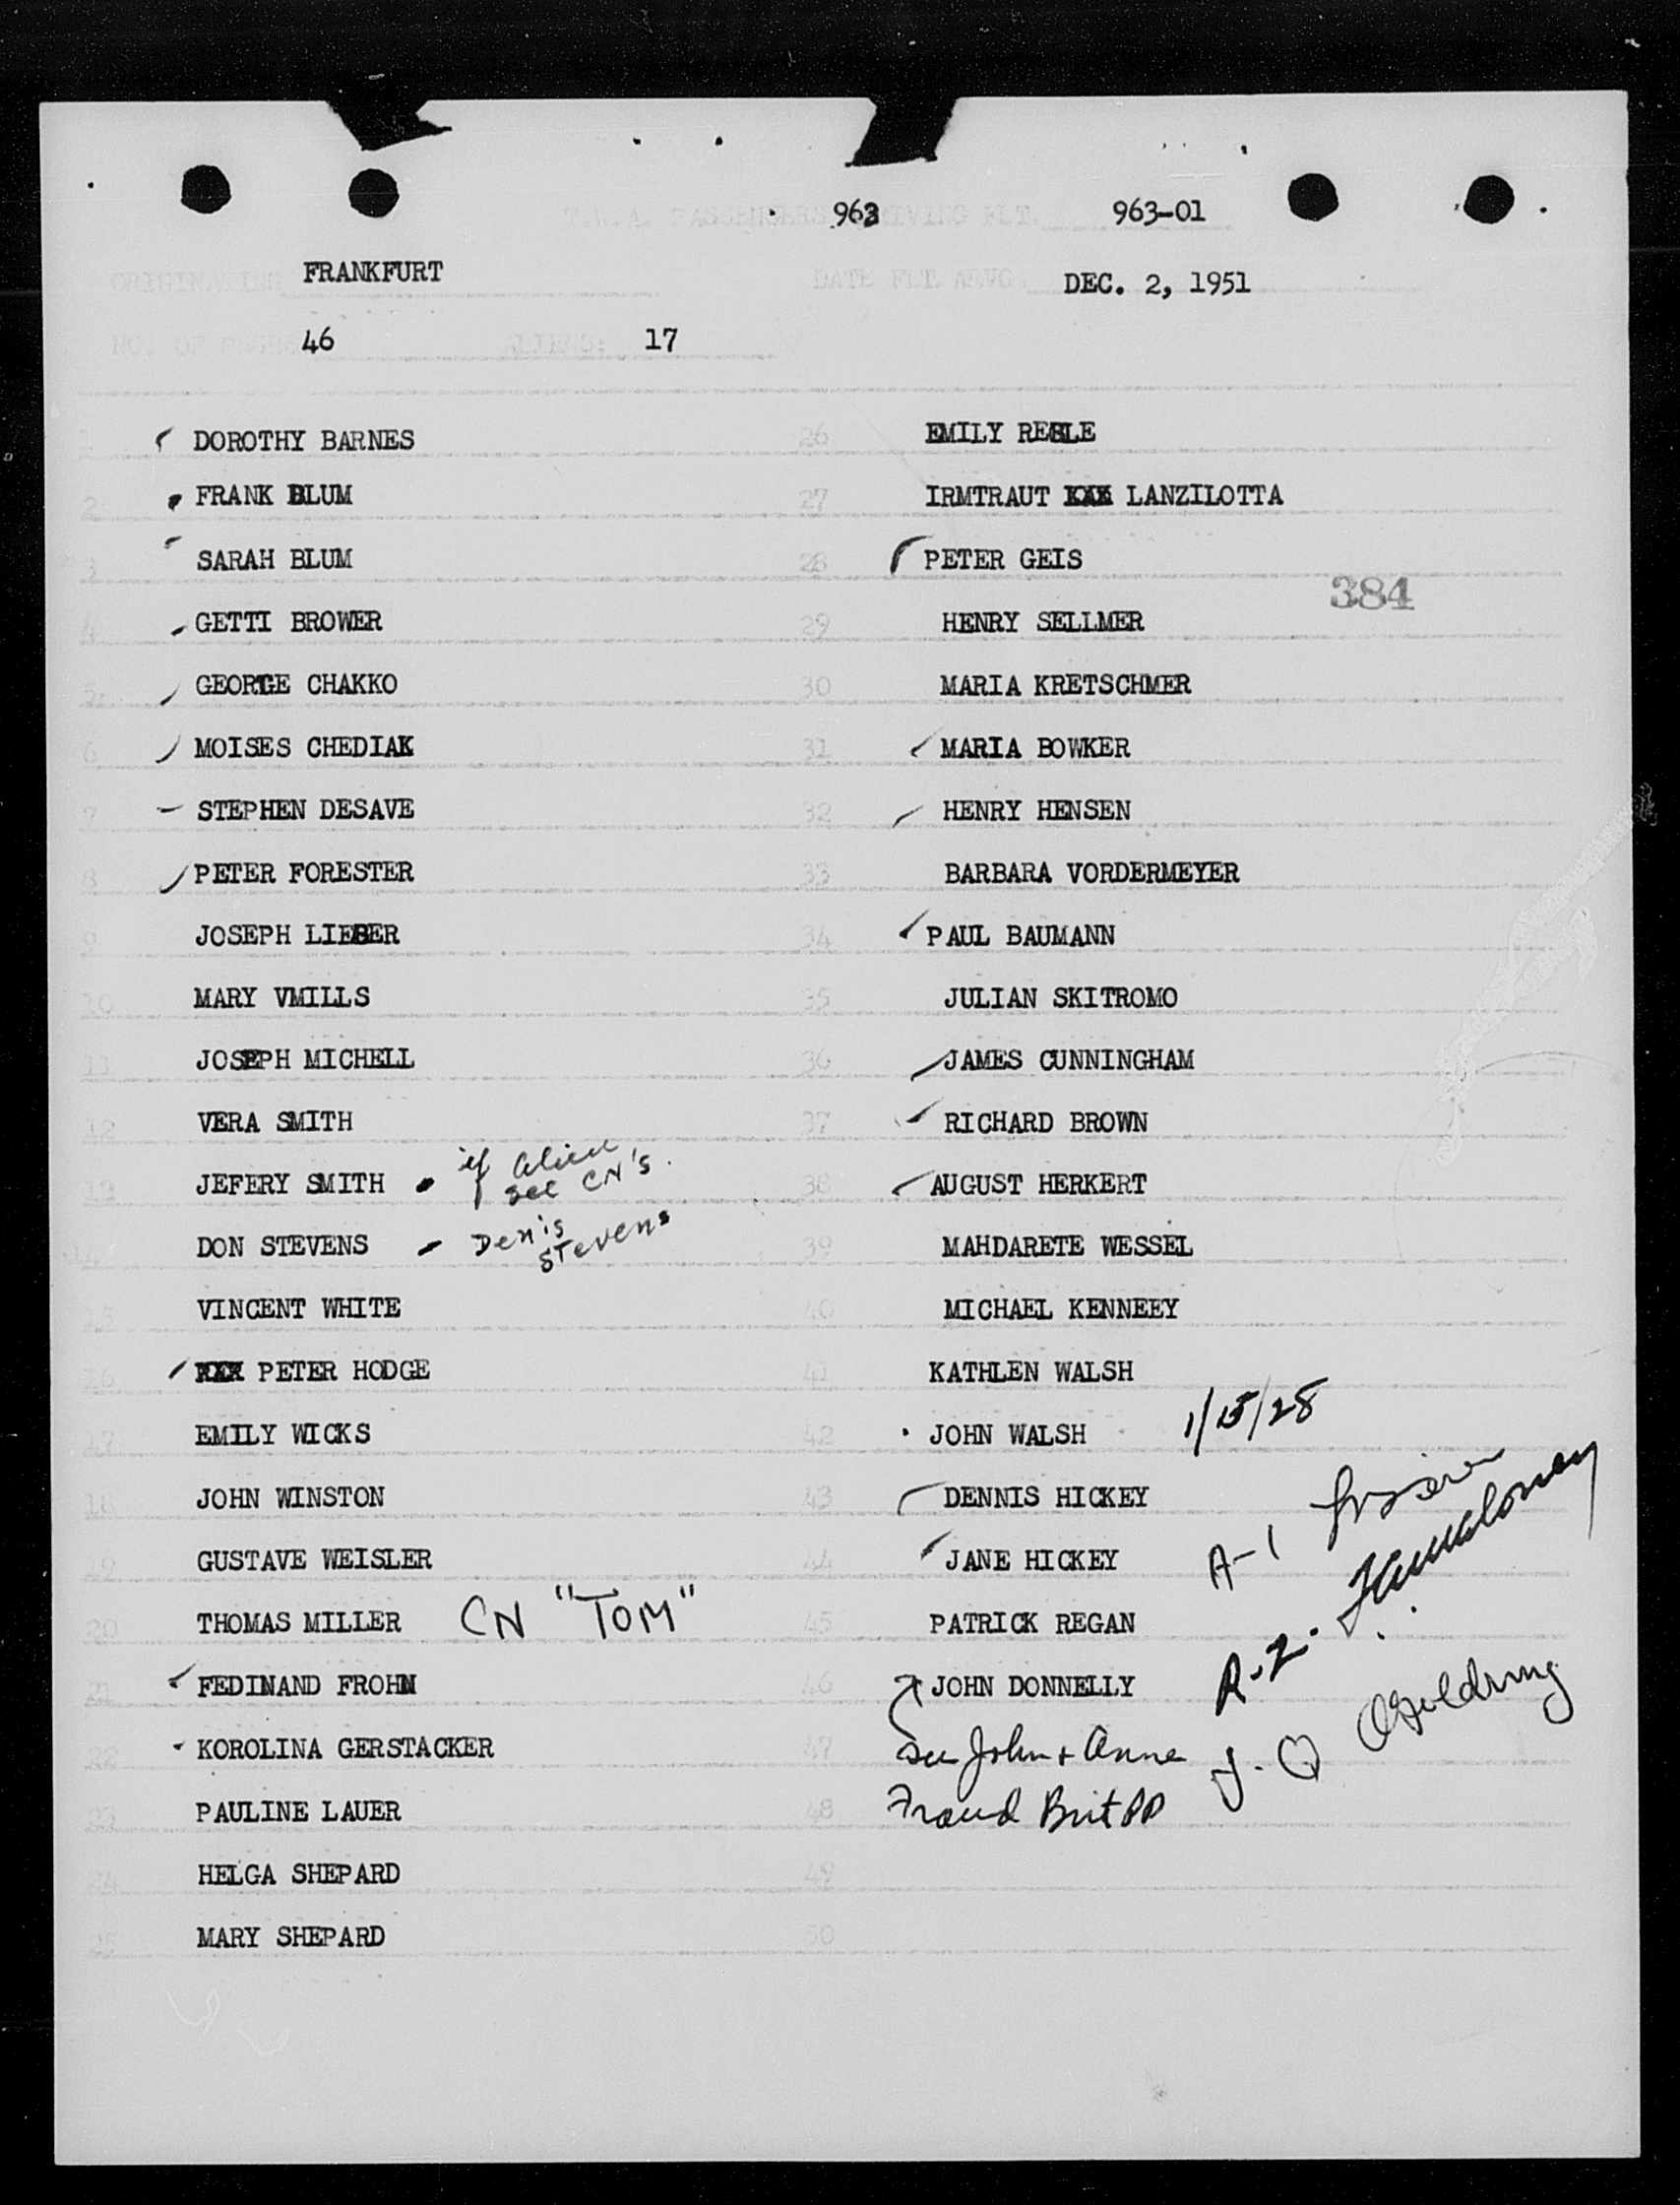 T.W.A. PASSENGERS ARRIVING FLT. 963 963-01
ORIGINATING FRANKFURT DATE FLT. ARVG. DEC. 2, 1951
NO. OF 46 ALIENS: 17
1 DOROTHY BARNES
2 FRANK BLUM
3 SARAH BLUM
4 GETTI BROWER
5 GEORGE CHAKKO
6 MOISES CHEDIAK
7 STEPHEN DESAVE
8 PETER FORESTER
9 JOSEPH LIEBER
10 MARY VMILLS
11 JOSEPH MICHELL
12 VERA SMITH
13 JEFERY SMITH - if alien see CN's.
14 DON STEVENS - Denis Stevens
15 VINCENT WHITE
16 XXX PETER HODGE
17 EMILY WICKS
18 JOHN WINSTON
19 GUSTAVE WEISLER
20 THOMAS MILLER CN "TOM"
21 FEDINAND FROHN
22 KOROLINA GERSTACKER
23 PAULINE LAUER
24 HELGA SHEPARD
25 MARY SHEPARD
26 EMILY
27 IRMTRAUT XXX LANZILOTTA
28 PETER GEIS
384
29 HENRY SELLMER
30 MARIA KRETSCHMER
31 MARIA BOWKER
32 HENRY HENSEN
33 BARBARA VORDERMEYER
34 PAUL BAUMANN
35 JULIAN SKITROMO
36 JAMES CUNNINGHAM
37 RICHARD BROWN
38 AUGUST HERKERT
39 MAHDARETE WESSEL
40 MICHAEL KENNEEY
41 KATHLEN WALSH
42 JOHN WALSH 1/15/28
43 DENNIS HICKEY
44 JANE HICKEY A-1
45 PATRICK REGAN
46 JOHN DONNELLY R-2.
47 See John + Anne
48 Fraud Brit PP
49
50